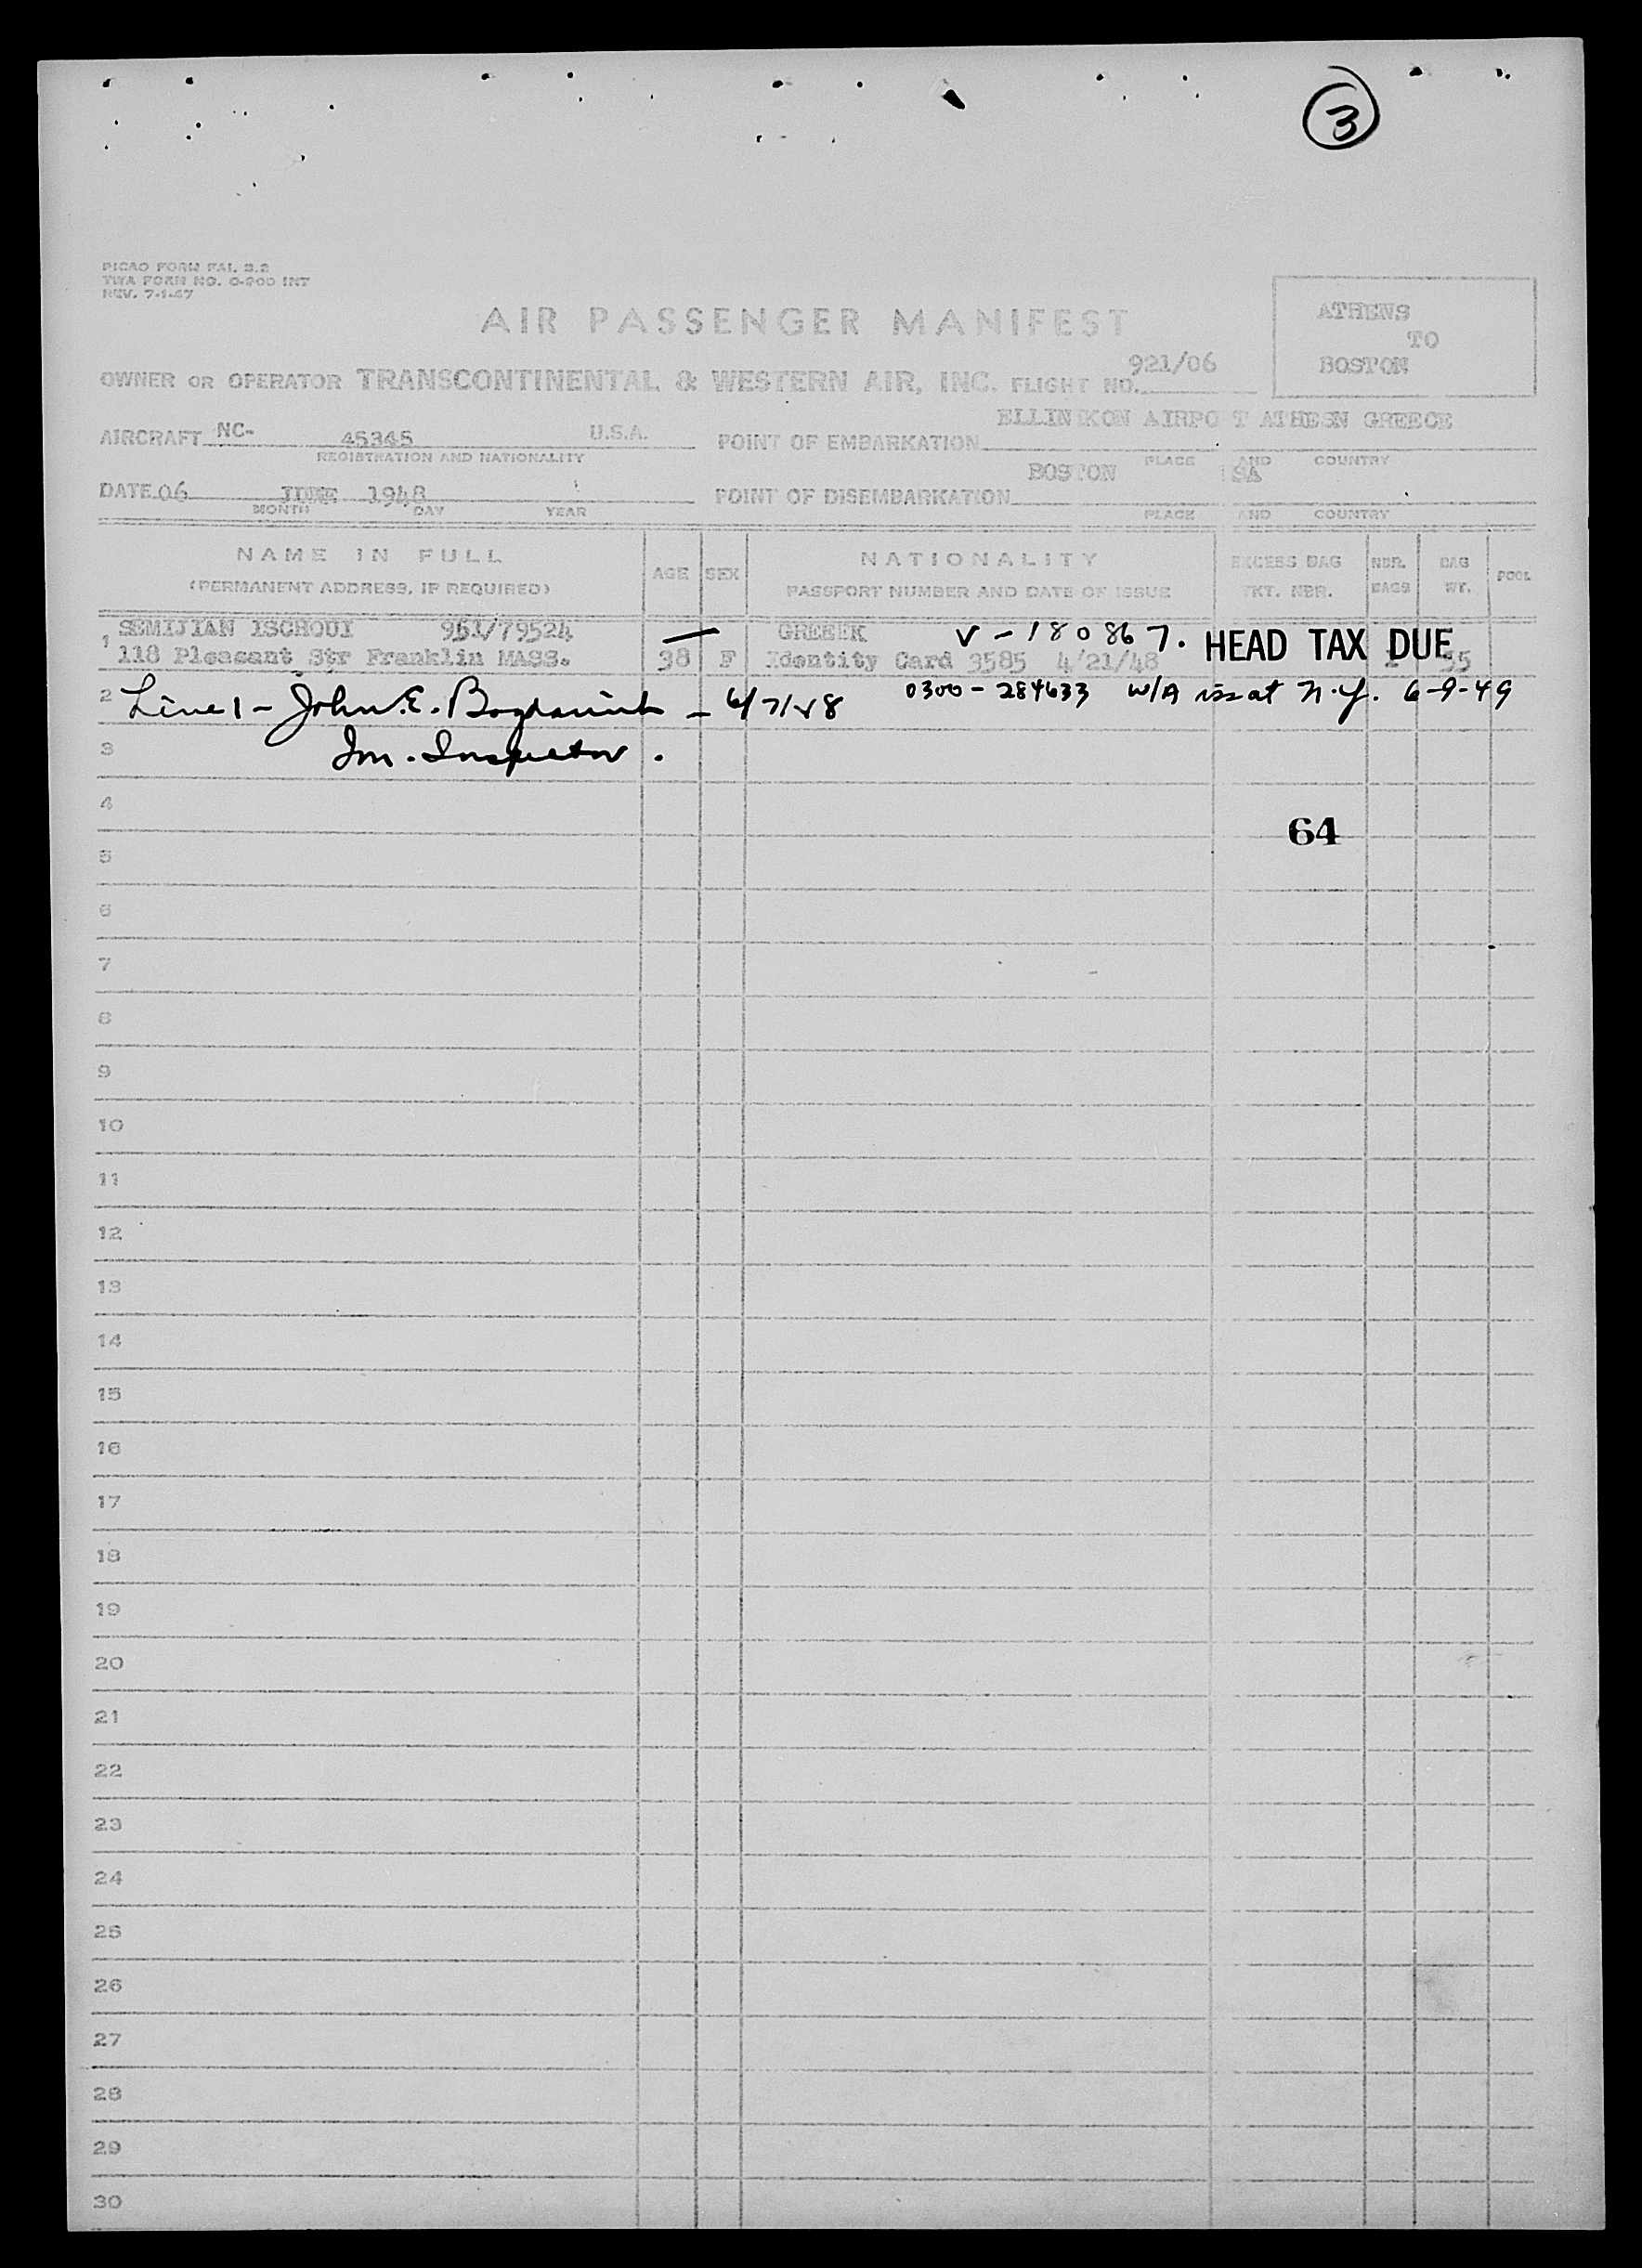 3
PICAO FORM FAI. 2.2
TWA FORM NO. O-200 INT
REV. 7-1-47
AIR PASSENGER MANIFEST
ATHENS
TO
BOSTON
OWNER OR OPERATOR TRANSCONTINENTAL & WESTERN AIR, INC. FLIGHT NO. 921/06
AIRCRAFT NC- 45345 U.S.A. POINT OF EMBARKATION ELLINIKON AIRPO T ATHESN GREECE
REGISTRATION AND NATIONALITY PLACE AND COUNTRY
DATE 06 JUNE 1948 POINT OF DISEMBARKATION BOSTON USA
MONTH DAY YEAR PLACE AND COUNTRY
NAME IN FULL AGE SEX NATIONALITY EXCESS BAG NBR. BAG POOL
(PERMANENT ADDRESS, IF REQUIRED) PASSPORT NUMBER AND DATE OF ISSUE TKT. NBR. BAGS WT.
1 SEMIJIAN ISCHOUI 961/79524 GREEEK V-180867. HEAD TAX DUE
118 Pleasant Str Franklin MASS. 38 F Identity Card 3585 4/21/48 55
2 Line 1 - John E. - 6/7/48 0300-284633 W/A iss at N.Y. 6-9-49
3 Im. Inspector.
4
64
5
6
7
8
9
10
11
12
13
14
15
16
17
18
19
20
21
22
23
24
25
26
27
28
29
30